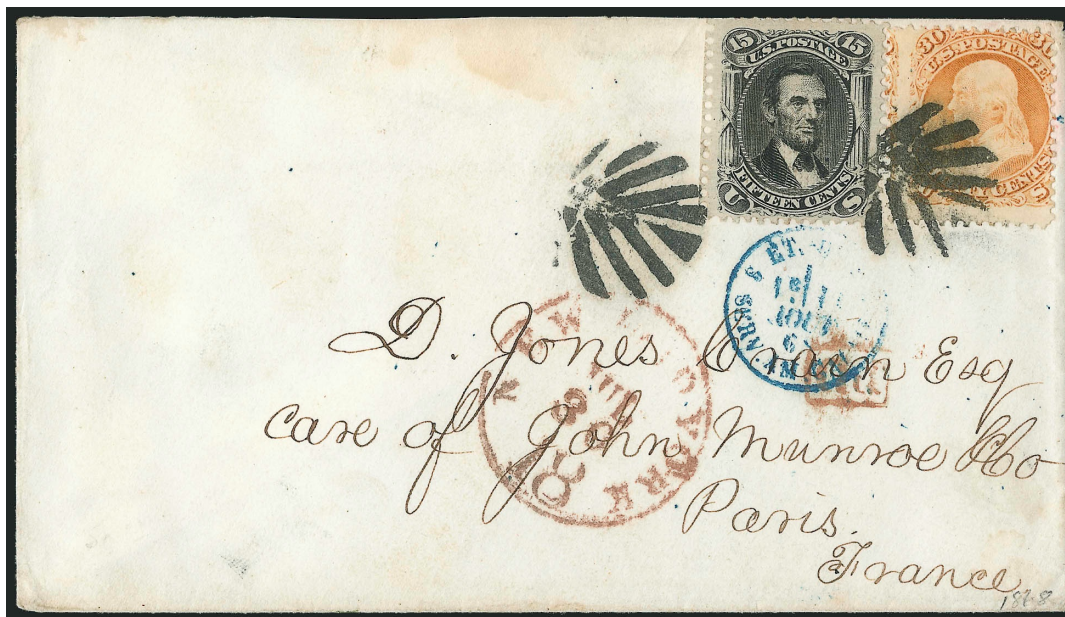 15 15
U.S. POSTAGE
FIFTEEN CENTS
U S
30 30
U.S. POSTAGE
CENTS
S
ET.
SERV.
AM.
NEW YORK
D. Jones Crain Esq
care of John Munroe & Co
Paris.
France
1868